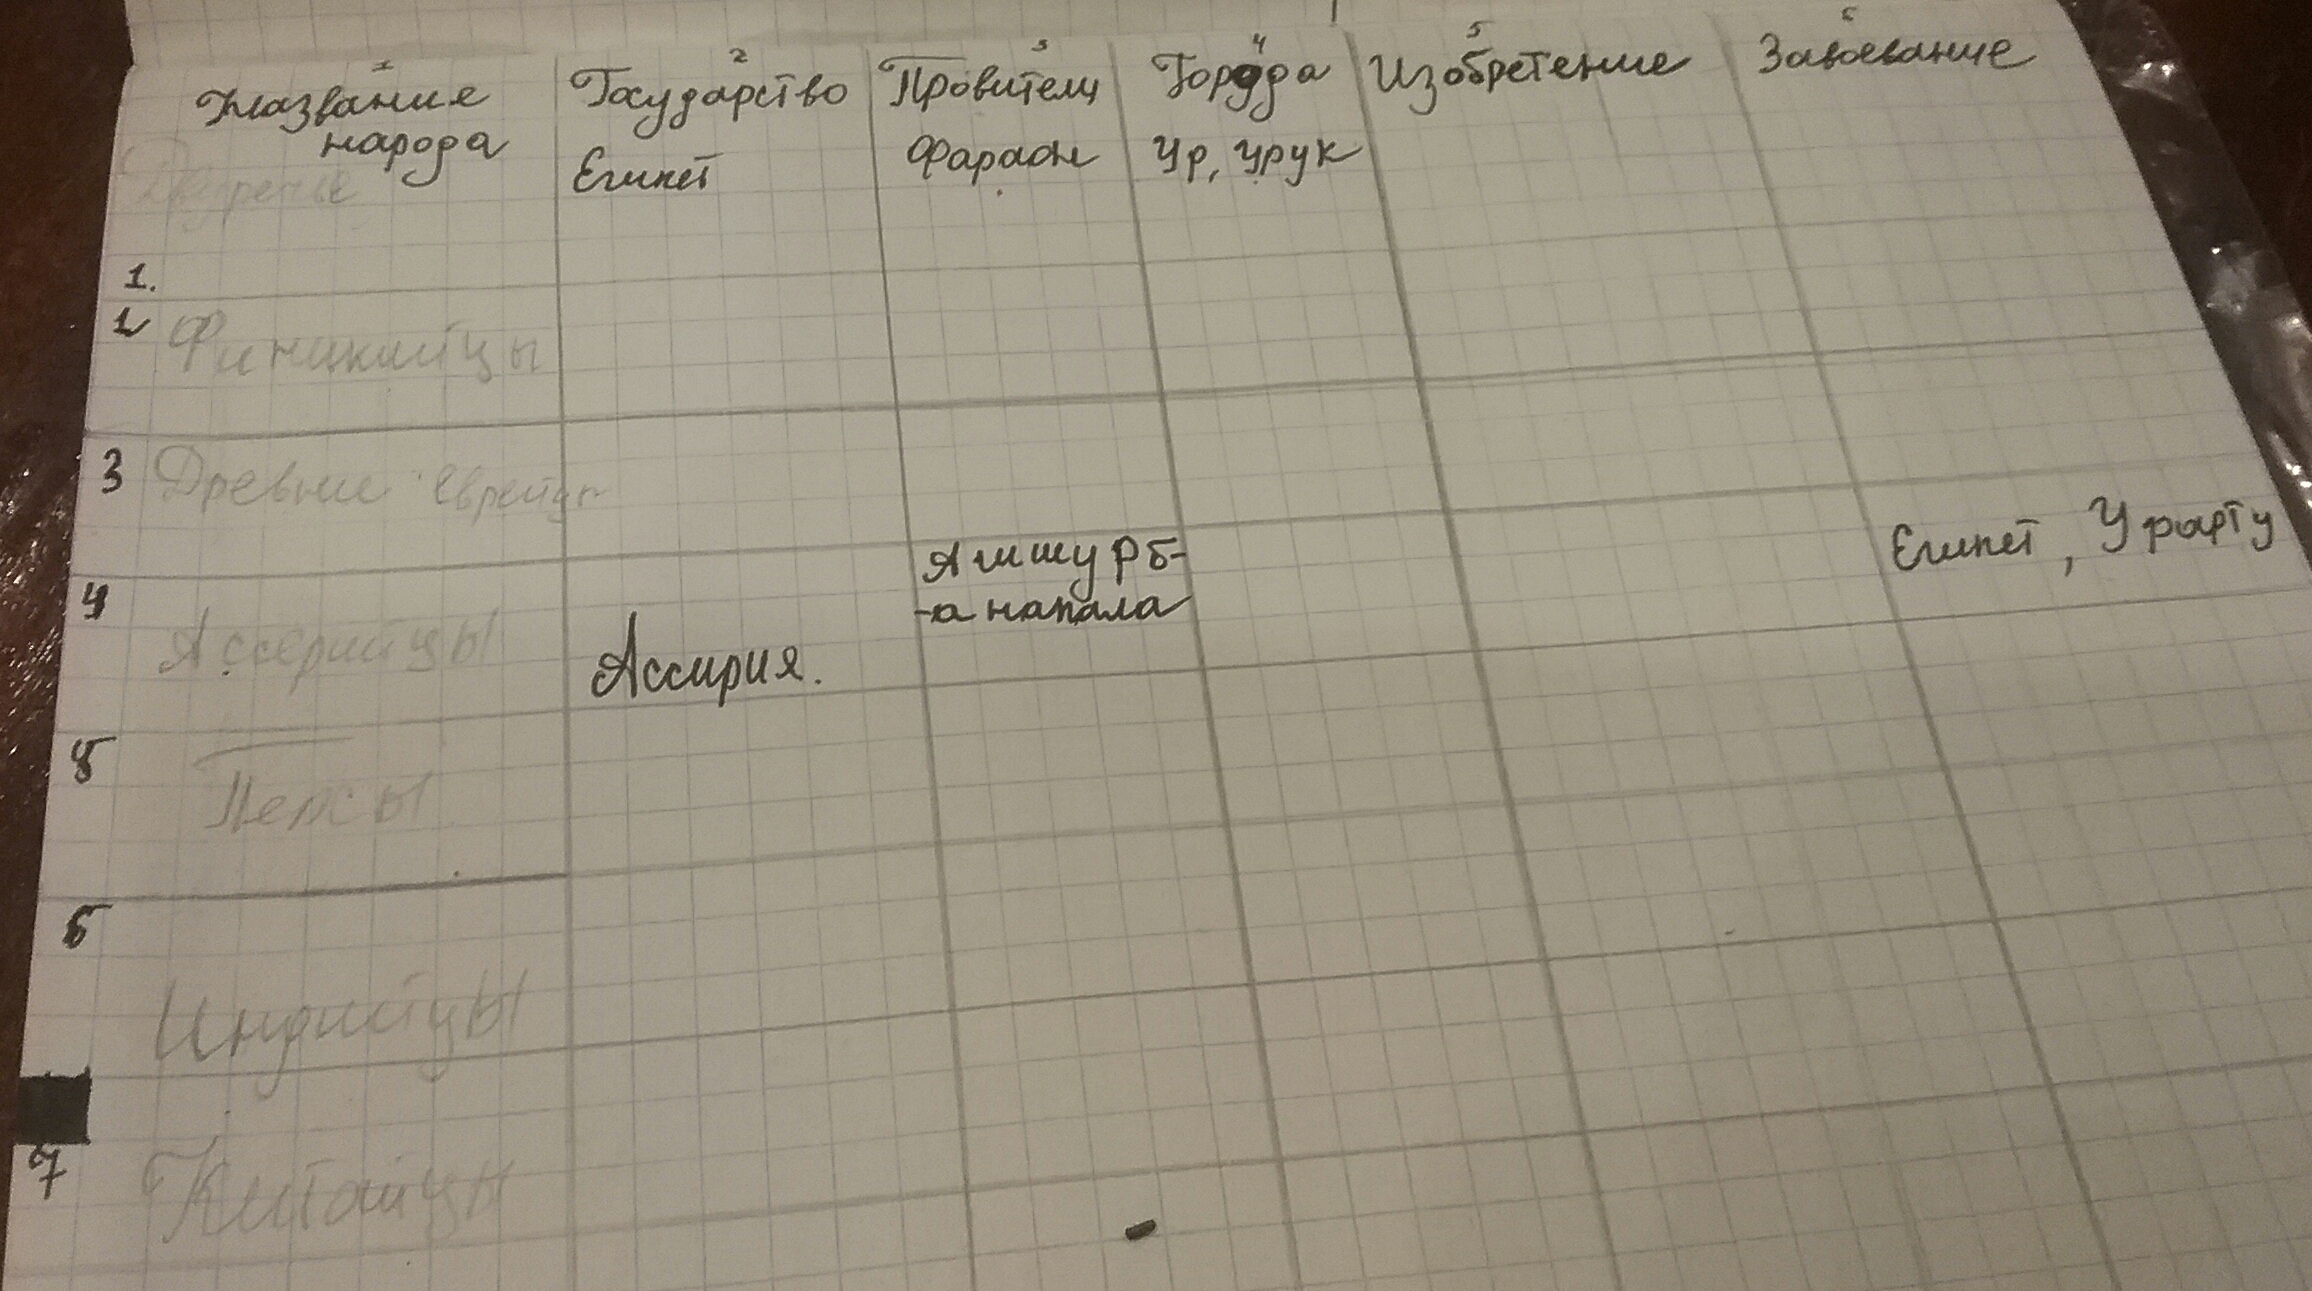 1 2 3 4 5 6
Название Государство Провители Города Изобретение Завоевание
народа Египет Фараон Ур, Урук
Двуречье
1.
2 Финикийцы
3 Древние евреи
Египет, Урарту
Ашшурб-
-анапала
4 Ассерийцы Ассирия.
5 Персы
6 Индийцы
7 Китайцы